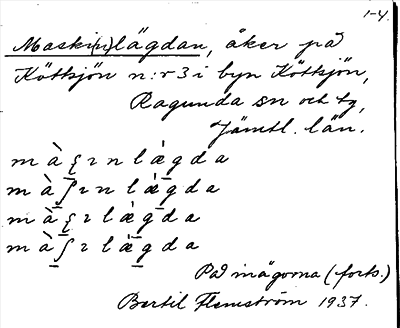 1-4.
Maski(n)lägdan, åker på
Köttsjön n:r 3 i byn Köttsjön,
Ragunda sn och tg,
Jämtl. län.
m à ʂ ı n l ȧ g d a
m à ʃ ı n l ȧ g d a
m à ʂ ı l ȧ g d a
m à ʃ ı l ȧ g d a
På inägorna (forts.)
Bertil Flemström 1937.